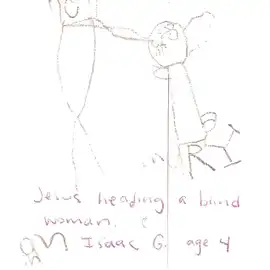 Jesus healing a blind
woman.
Isaac G. age 4